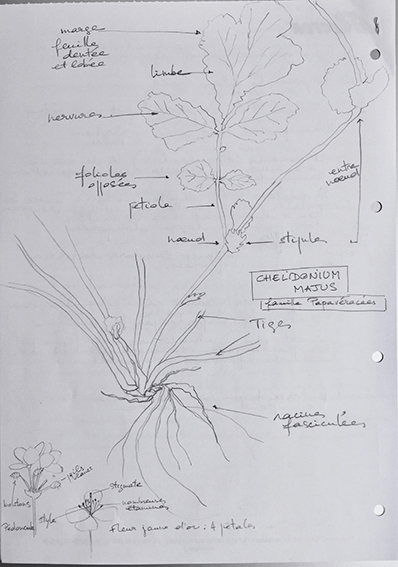 marge
feuille
dentée
et lobée
limbe
nervures
folioles
opposées
pétiole
entre
nœud
nœud
stipule
CHELIDONIUM
MAJUS
famille Papavéracées
Tiges
racines
fasciculées
boutons
Pédoncule
style
stigmate
nombreuses
étamines
Fleur jaune d'or : 4 pétales